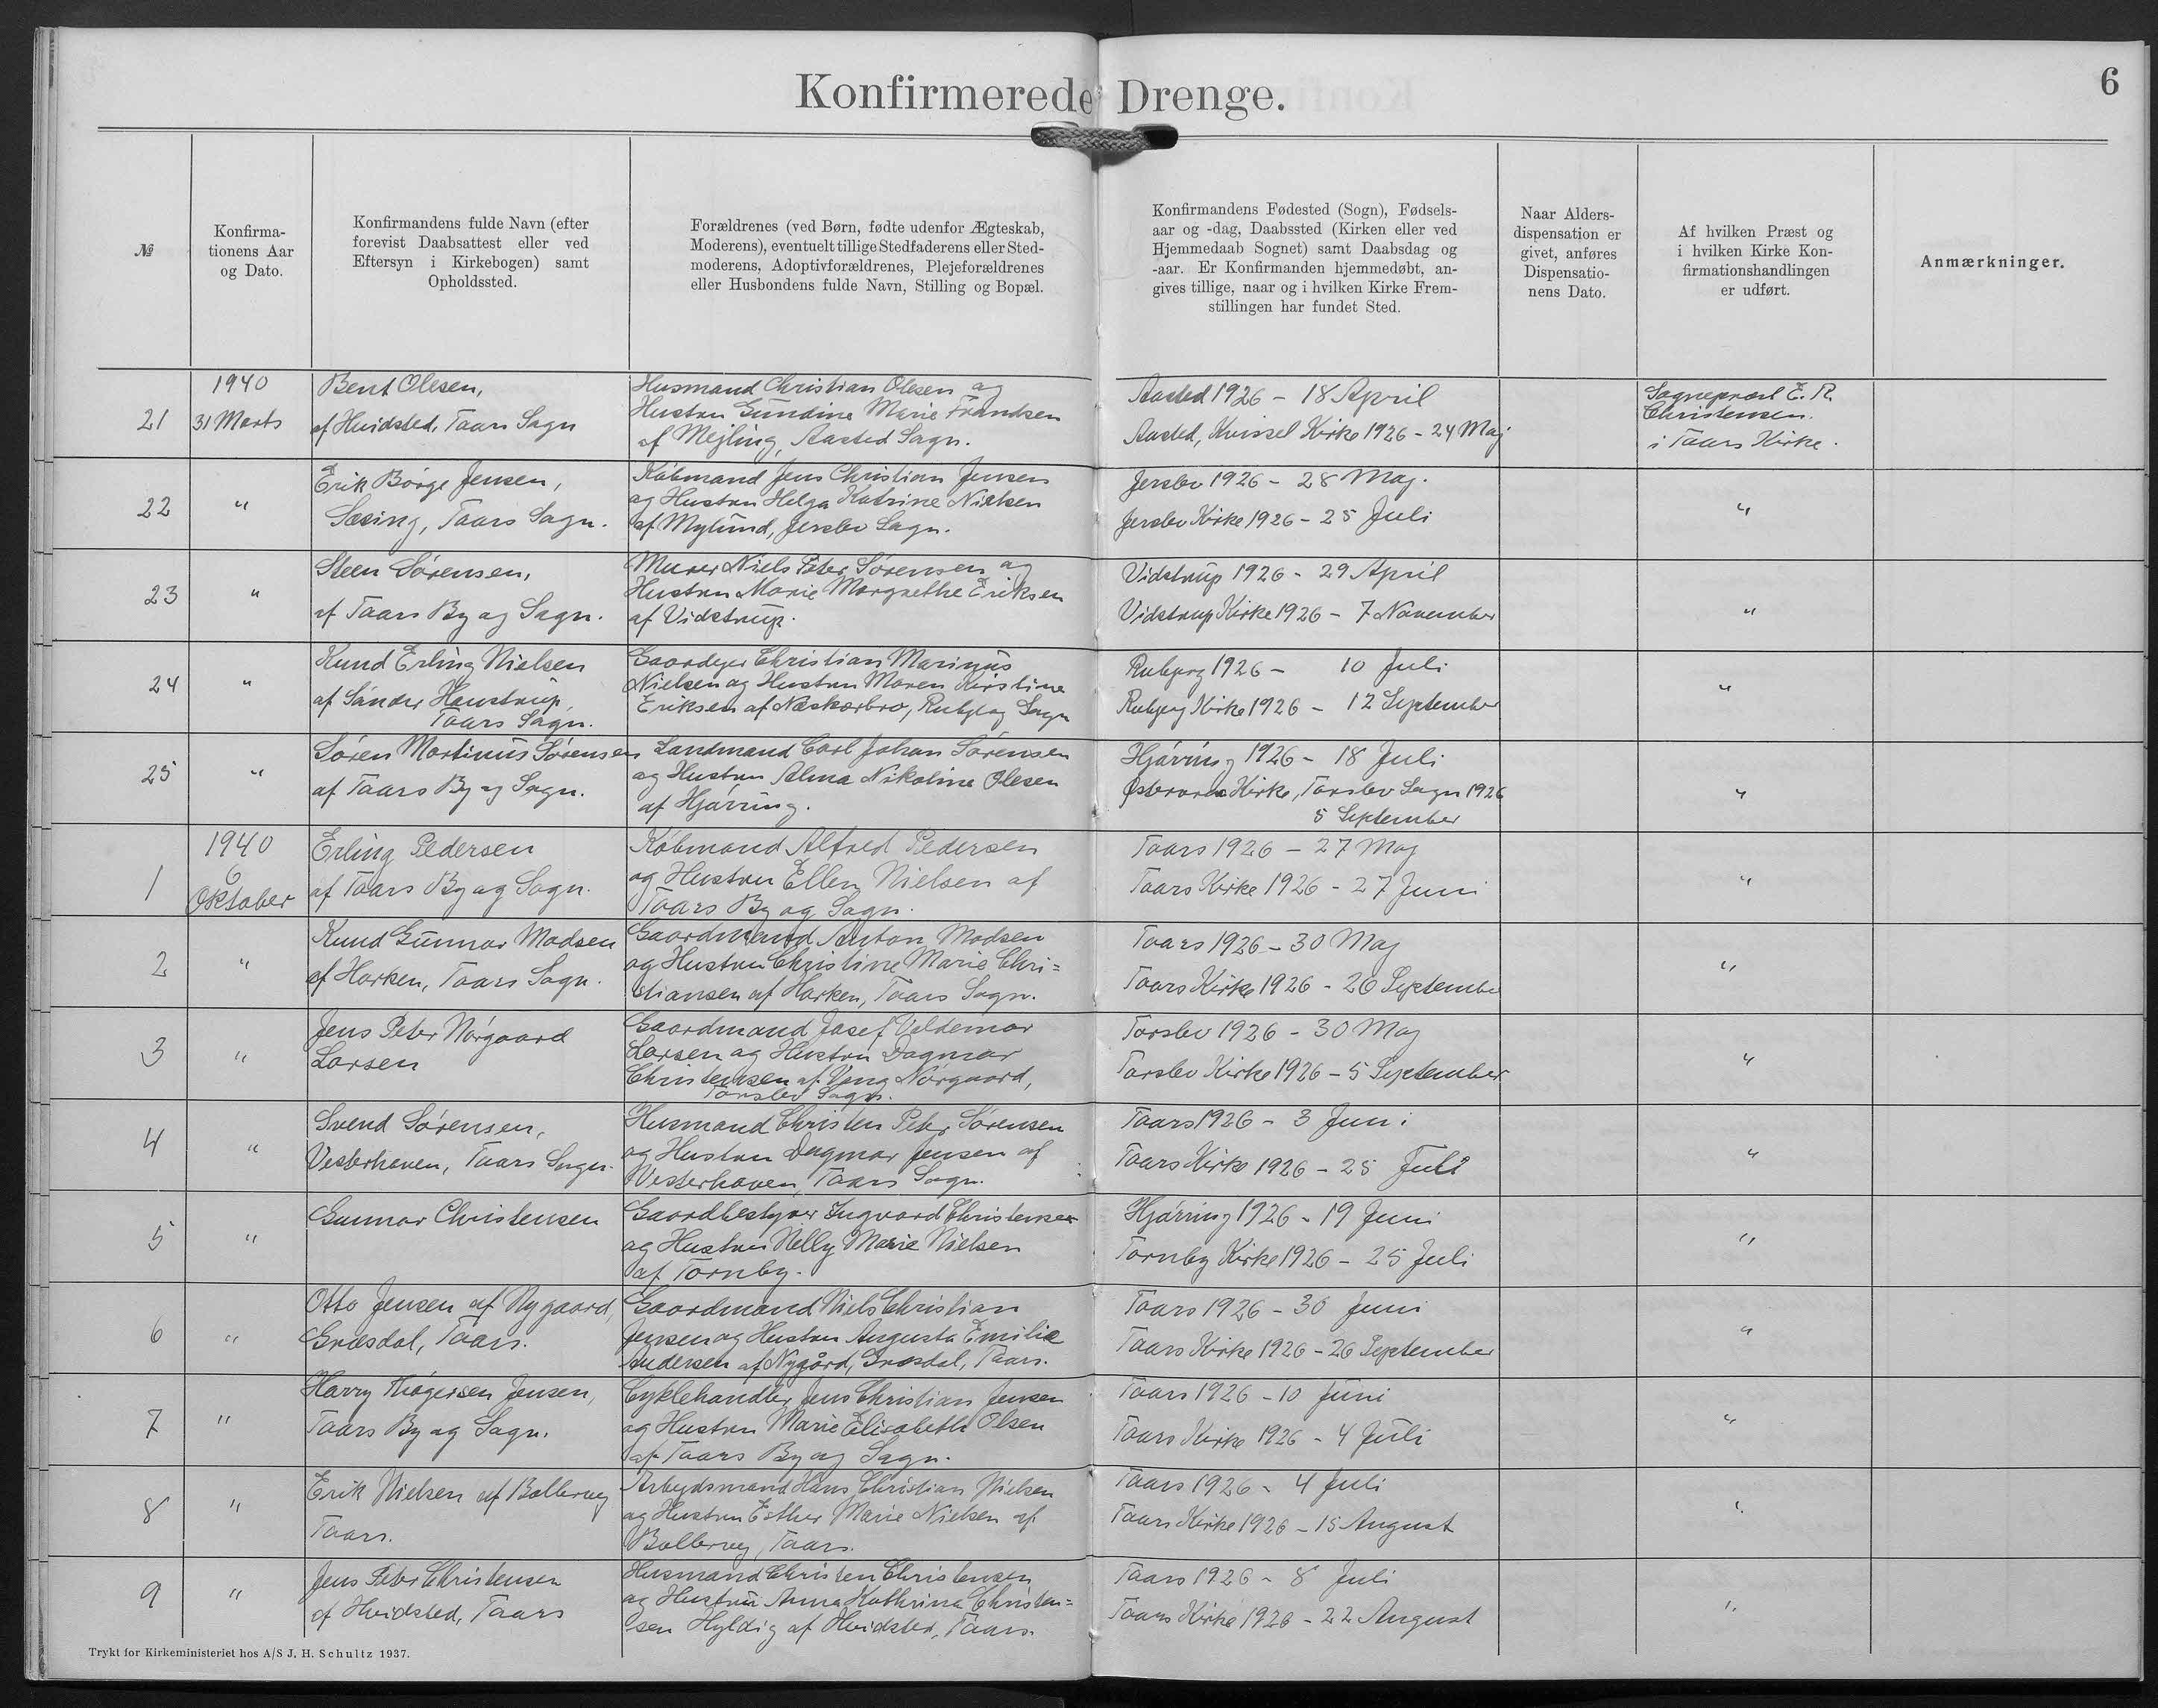 Konfirmerede Drenge.
6
№
Konfirma-
tionens Aar
og Dato.
Konfirmandens fulde Navn (efter
forevist Daabsattest eller ved
Eftersyn i Kirkebogen) samt
Opholdssted.
Forældrenes (ved Børn, fødte udenfor Ægteskab,
Moderens), eventuelt tillige Stedfaderens eller Sted-
moderens, Adoptivforældrenes, Plejeforældrenes
eller Husbondens fulde Navn, Stilling og Bopæl.
Konfirmandens Fødested (Sogn), Fødsels-
aar og -dag, Daabssted (Kirken eller ved
Hjemmedaab Sognet) samt Daabsdag og
-aar. Er Konfirmanden hjemmedøbt, an-
gives tillige, naar og i hvilken Kirke Frem-
stillingen har fundet Sted.
Naar Alders-
dispensation er
givet, anføres
Dispensatio-
nens Dato.
Af hvilken Præst og
i hvilken Kirke Kon-
firmationshandlingen
er udført.
Anmærkninger.
21
1940
31 Marts
Bent Olesen,
af Hvidsted, Taars Sogn
Husmand Christian Olesen og
Hustru Gundine Marie Frandsen
af Mejling, Aasted Sogn.
Aasted 1926 - 18 April
Aasted, Kvissel Kirke 1926 - 24 Maj
Sognepræst E. R.
Christensen.
i Taars Kirke.
22
"
Erik Börge Jensen,
Sæsing, Taars Sogn.
Köbmand Jens Christian Jensen
og Hustru Helga Katrine Nielsen
af Mylund, Jerslev Sogn.
Jerslev 1926 - 28 Maj.
Jerslev Kirke 1926 - 25 Juli
"
23
"
Steen Sörensen,
af Taars By og Sogn.
Murer Niels Peter Sörensen og
Hustru Marie Margrethe Eriksen
af Vidstrup.
Vidstrup 1926 - 29 April
Vidstrup Kirke 1926 - 7 November
"
24
"
Knud Erling Nielsen
af Sönder Havstrup,
Taars Sogn.
Gaardejer Christian Marinus
Nielsen og Hustru Maren Kirstine
Eriksen af Næskærbro, Rubjerg Sogn
Rubjerg 1926 - 10 Juli
Rubjerg Kirke 1926 - 12 September
"
25
"
Sören Martinus Sörensen
af Taars By og Sogn.
Landmand Carl Johan Sörensen
og Hustru Alma Nikoline Olesen
af Hjörring.
Hjörring 1926 - 18 Juli
Kirke, Torslev Sogn 1926
5 September
"
1
1940
6
Oktober
Erling Pedersen
af Taars By og Sogn.
Köbmand Alfred Pedersen
og Hustru Ellen Nielsen af
Taars By og Sogn.
Taars 1926 - 27 Maj
Taars Kirke 1926 - 27 Juni
"
2
"
Knud Gunnar Madsen
af Harken, Taars Sogn.
Gaardmand Anton Madsen
og Hustru Christine Marie Chri=
stiansen af Harken, Taars Sogn.
Taars 1926 - 30 Maj
Taars Kirke 1926 - 26 September
"
3
"
Jens Peter Nörgaard
Larsen
Gaardmand Josef Valdemar
Larsen og Hustru Dagmar
Christensen af Vang Nörgaard,
Torslev Sogn.
Torslev 1926 - 30 Maj
Torslev Kirke 1926 - 5 September
"
4
"
Svend Sörensen,
Vesterhaven, Taars Sogn.
Husmand Christen Peter Sörensen
og Hustru Dagmar Jensen af
Vesterhaven, Taars Sogn.
Taars 1926 - 3 Juni
Taars Kirke 1926 - 25 Juli
"
5
"
Gunnar Christensen
Gaardbestyrer Ingvard Christensen
og Hustru Nelly Marie Nielsen
af Tornby.
Hjörring 1926 - 19 Juni
Tornby Kirke 1926 - 25 Juli
"
6
"
Otto Jensen af Nygaard,
Græsdal, Taars.
Gaardmand Niels Christian
Jensen og Hustru Augusta Emilie
Andersen af Nygård, Græsdal, Taars.
Taars 1926 - 30 Juni
Taars Kirke 1926 - 26 September
"
7
"
Harry Thögersen Jensen,
Taars By og Sogn.
Cyklehandler Jens Christian Jensen
og Hustru Marie Elisabeth Olsen
af Taars By og Sogn.
Taars 1926 - 10 Juni
Taars Kirke 1926 - 4 Juli
"
8
"
Erik Nielsen af Bollervej
Taars.
Arbejdsmand Hans Christian Nielsen
og Hustru Esther Marie Nielsen af
Bollervej, Taars.
Taars 1926 - 4 Juli
Taars Kirke 1926 - 15 August
"
9
"
Jens Peter Christensen
af Hvidsted, Taars
Husmand Christen Christensen
og Hustru Anna Kathrine Christen=
sen Hyldig af Hvidsted, Taars.
Taars 1926 - 8 Juli
Taars Kirke 1926 - 22 August
"
Trykt for Kirkeministeriet hos A/S J. H. Schultz 1937.